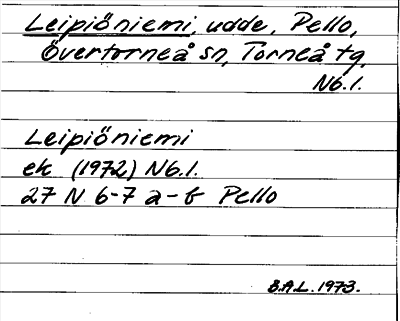 Leipiöniemi, udde, Pello,
Övertorneå sn, Torneå tg,
Nb.l.
Leipiöniemi
ek (1972) Nb.l.
27 N 6-7 a-b Pello
B.A.L. 1973.